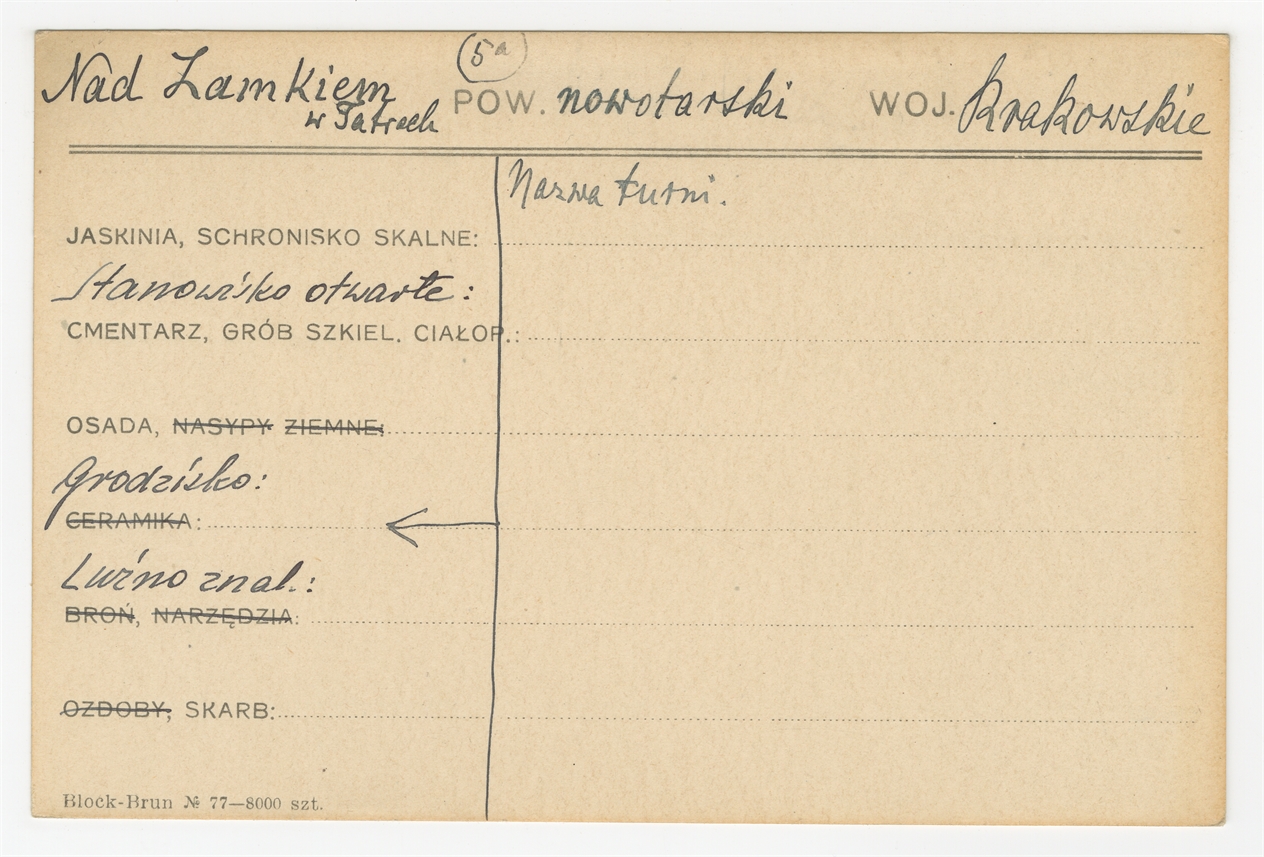 5a
Nad Zamkiem POW. nowotarski WOJ. Krakowskie
w Tatrach
Nazwa turni.
JASKINIA, SCHRONISKO SKALNE:
Stanowisko otwarte:
CMENTARZ, GRÓB SZKIEL. CIAŁOP.:
OSADA, NASYPY ZIEMNE:
Grodzisko:
CERAMIKA:
Luźno znal.:
BROŃ, NARZĘDZIA:
OZDOBY, SKARB:
Block-Brun № 77—8000 szt.